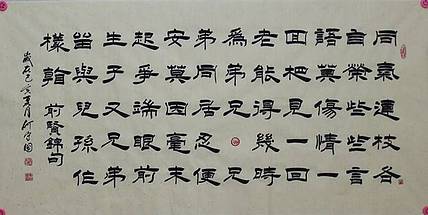 同氣連枝各
自榮些些言
語莫傷情一
回相見一回
老能得幾時
爲弟兄兄
弟同居忍便
安莫因毫末
起爭端眼前
生子又兄弟
畱與兒孫作
樣看 前賢錦句
歲在己亥夏月